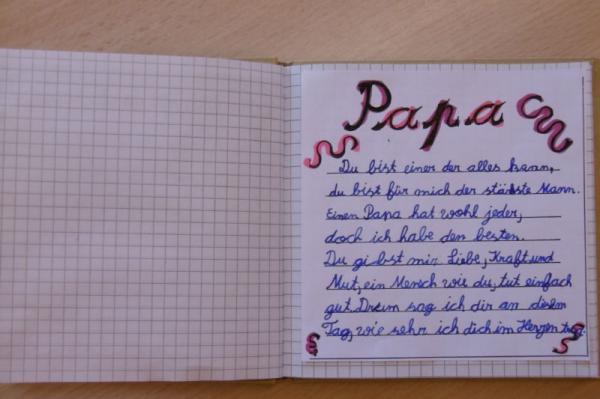 Papa
Du bist einer der alles kann,
du bist für mich der stärkste Mann.
Einen Papa hat wohl jeder,
doch ich habe den besten.
Du gibst mir Liebe, Kraft und
Mut, ein Mensch wie du, tut einfach
gut. Drum sag ich dir an diesem
Tag, wie sehr ich dich im Herzen trag.